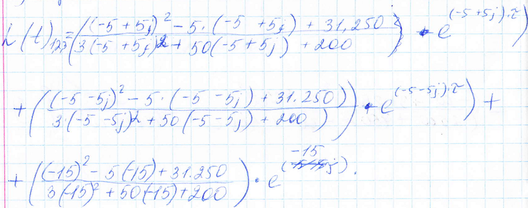 i(t)₁₂₃=(((-5+5j)²-5·(-5+5j)+31,250)/(3(-5+5j)2+50(-5+5j)+200))·e^((-5+5j)·τ))
+(((-5-5j)²-5·(-5-5j)+31.250)/(3(-5-5j)2+50(-5-5j)+200))·e^((-5-5j)·τ)+
+(((-15)²-5(-15)+31.250)/(3(-15)²+50(-15)+200))·e^(-15).